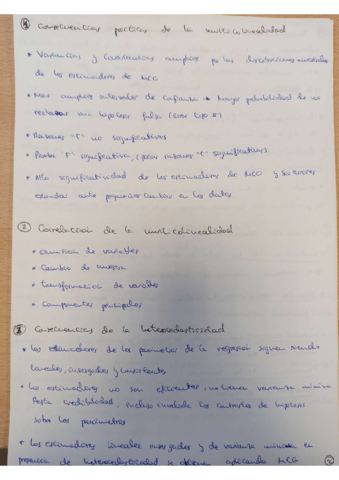 ① Consecuencias prácticas de la multicolinealidad
• Varianzas y Covarianzas amplias pa las distribuciones muestrales
de los estimadores de MCO
• Mas amplios intervalos de confianza → Mayor probabilidad de no
rechazar una hipótesis falsa (error tipo II)
• Razones "t" no significativas
• Prueba "F" significativa, (pocas razones "t" significativas).
• Alta significatividad de los estimadores de MCO y sus errores
estandar ante pequeños cambios en los datos
② Correlación de la multicolinealidad
• omisión de variables
• Cambio de muestra
• transformación de variables
• Componentes principales
③ Consecuencias de la heterocedasticidad
• Los estimadores de los parametros de la regresión siguen siendo
lineales, insesgados y consistentes
• Los estimadores no son eficientes, no tienen varianza mínima
Resta credibilidad, incluso invalida los contrastes de hipotesis
sobre los parámetros
• Los estimadores lineales insesgados y de varianza mínima en
presencia de heterocedasticidad se obtienen aplicando MCG
②